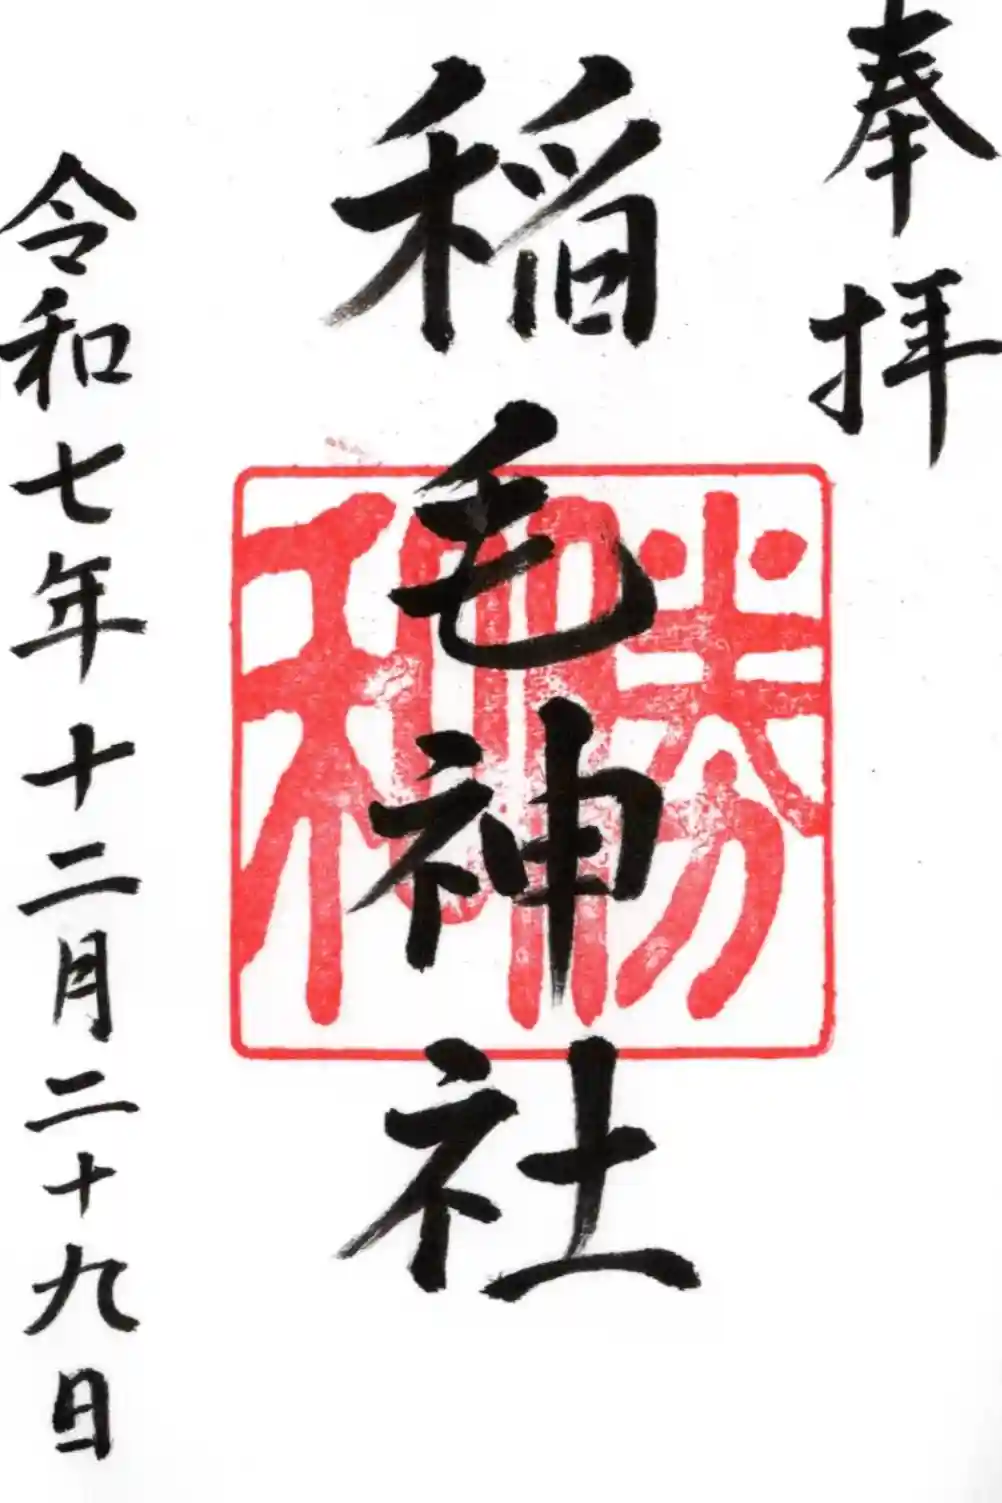 奉拝
稲毛神社
勝利
令和七年十二月二十九日